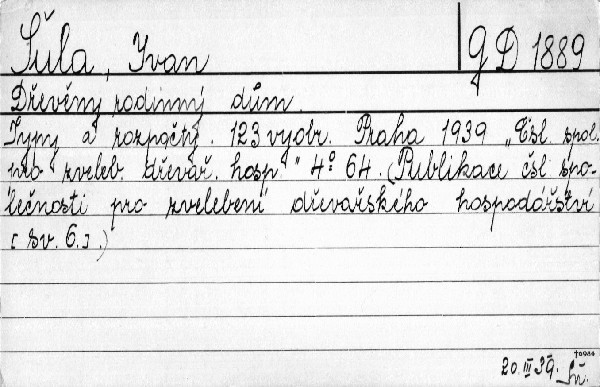 Šůla, Ivan
gD 1889
Dřevěný rodinný dům.
Typy a rozpočty. 123 vyobr. Praha 1939 „Čsl. spol.
pro zveleb. dřevař. hosp." 4° 64. (Publikace čsl. spo-
lečnosti pro zvelebení dřevařského hospodářství
[sv. 6.].)
20.III.39.